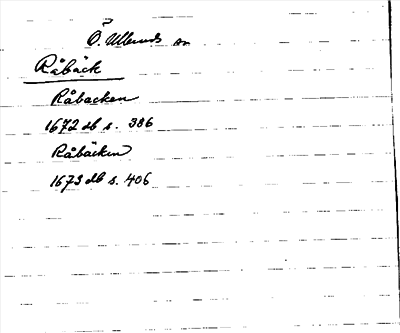 Ö. Ullerud sn
Råbäck
Råbacken
1672 db s. 386
Råbäcken
1673 db s. 406